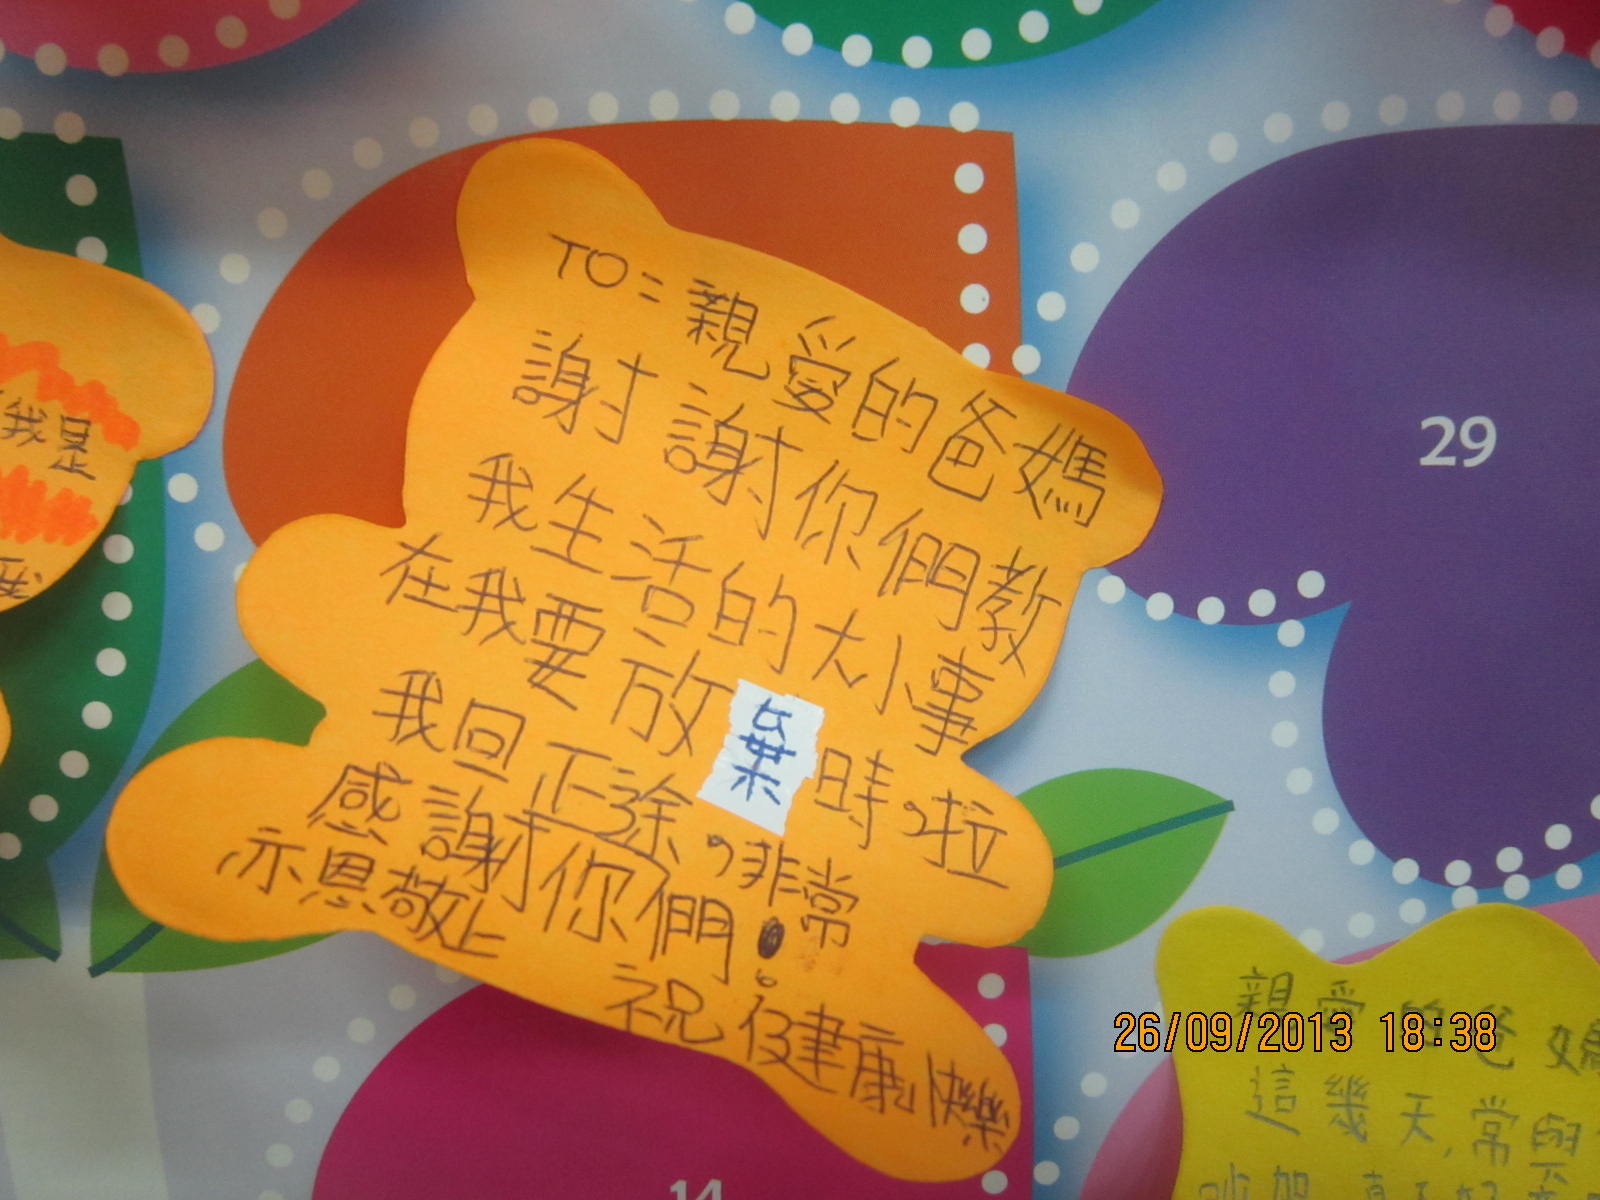 TO=親愛的爸媽
謝謝你們教
我生活的大小事
在我要放棄時,啦
我回正途,非常
感謝你們!
亦恩敬上
祝健康快樂
29
14
我是
我
26/09/2013 18:38
親愛的爸媽
這幾天,常與
吵架